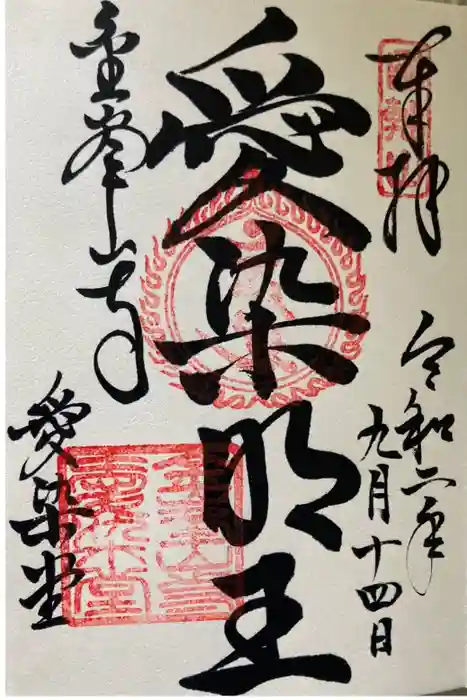 奉拝
國軸山
令和二年
九月十四日
愛染明王
金峯山寺
愛染堂